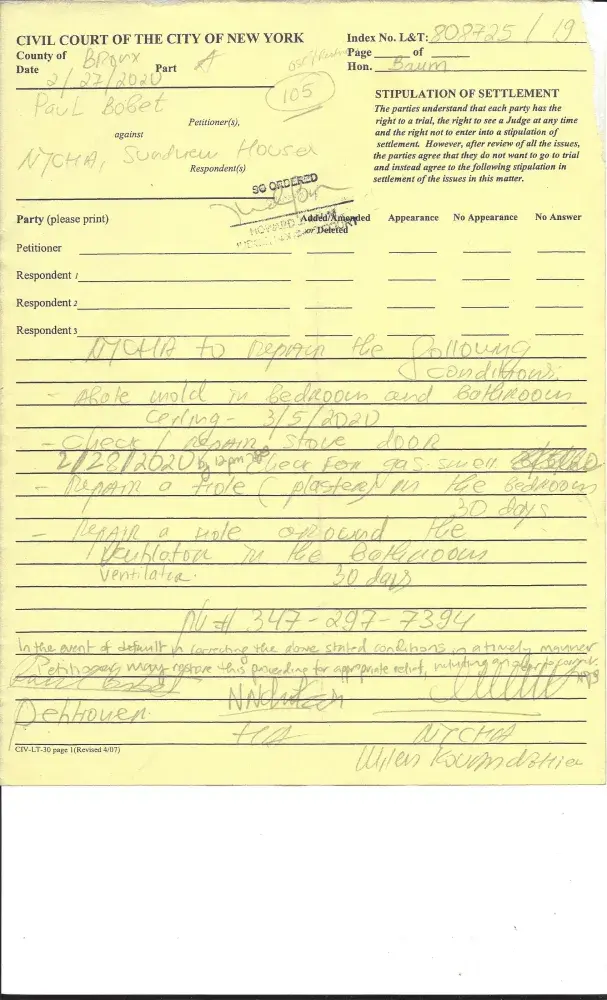 CIVIL COURT OF THE CITY OF NEW YORK
County of Bronx
Date 2/27/2020 Part A
Index No. L&T: 808725 / 19
Page of
Hon. Baum
105
Paul Bobet
Petitioner(s),
against
NYCHA, Sundview Houses
Respondent(s)
STIPULATION OF SETTLEMENT
The parties understand that each party has the
right to a trial, the right to see a Judge at any time
and the right not to enter into a stipulation of
settlement. However, after review of all the issues,
the parties agree that they do not want to go to trial
and instead agree to the following stipulation in
settlement of the issues in this matter.
SO ORDERED
HOWARD
Party (please print) Added/Amended Appearance No Appearance No Answer
or Deleted
Petitioner
Respondent 1
Respondent 2
Respondent 3
NYCHA to repair the following
conditions:
- Abate mold in bedroom and bathroom
ceiling - 3/5/2020
- Check / repair stove door
2/28/2020 by 12pm check for gas smell
- Repair a hole (plaster) in the bedroom
30 days
- Repair a hole around the
ventilator in the bathroom
ventilator. 30 days
PN # 347-297-7394
In the event of default in correcting the above stated conditions in a timely manner
Petitioner may restore this proceeding for appropriate relief, including an order to
Petitioner
NYCHA
CIV-LT-30 page 1(Revised 4/07)